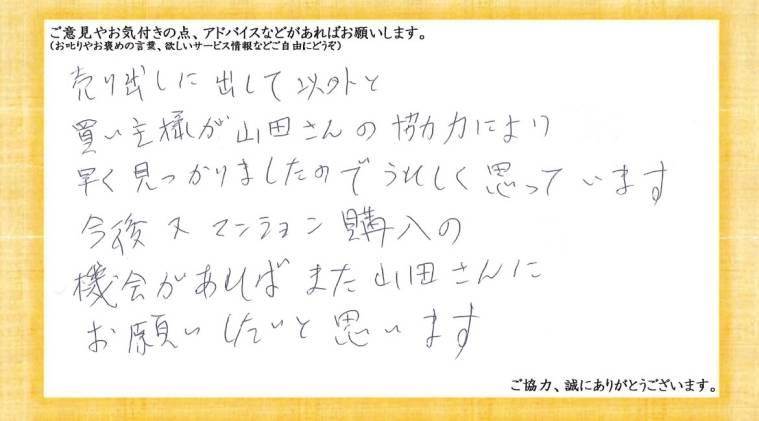 ご意見やお気付きの点、アドバイスなどがあればお願いします。
(お叱りやお褒めの言葉、欲しいサービス情報などご自由にどうぞ)
売り出しに出して以外と
買い主様が山田さんの協力により
早く見っかりましたのでうれしく思っています
今後又マンション購入の
機会があればまた山田さんに
お願いしたいと思います
ご協力、誠にありがとうございます。